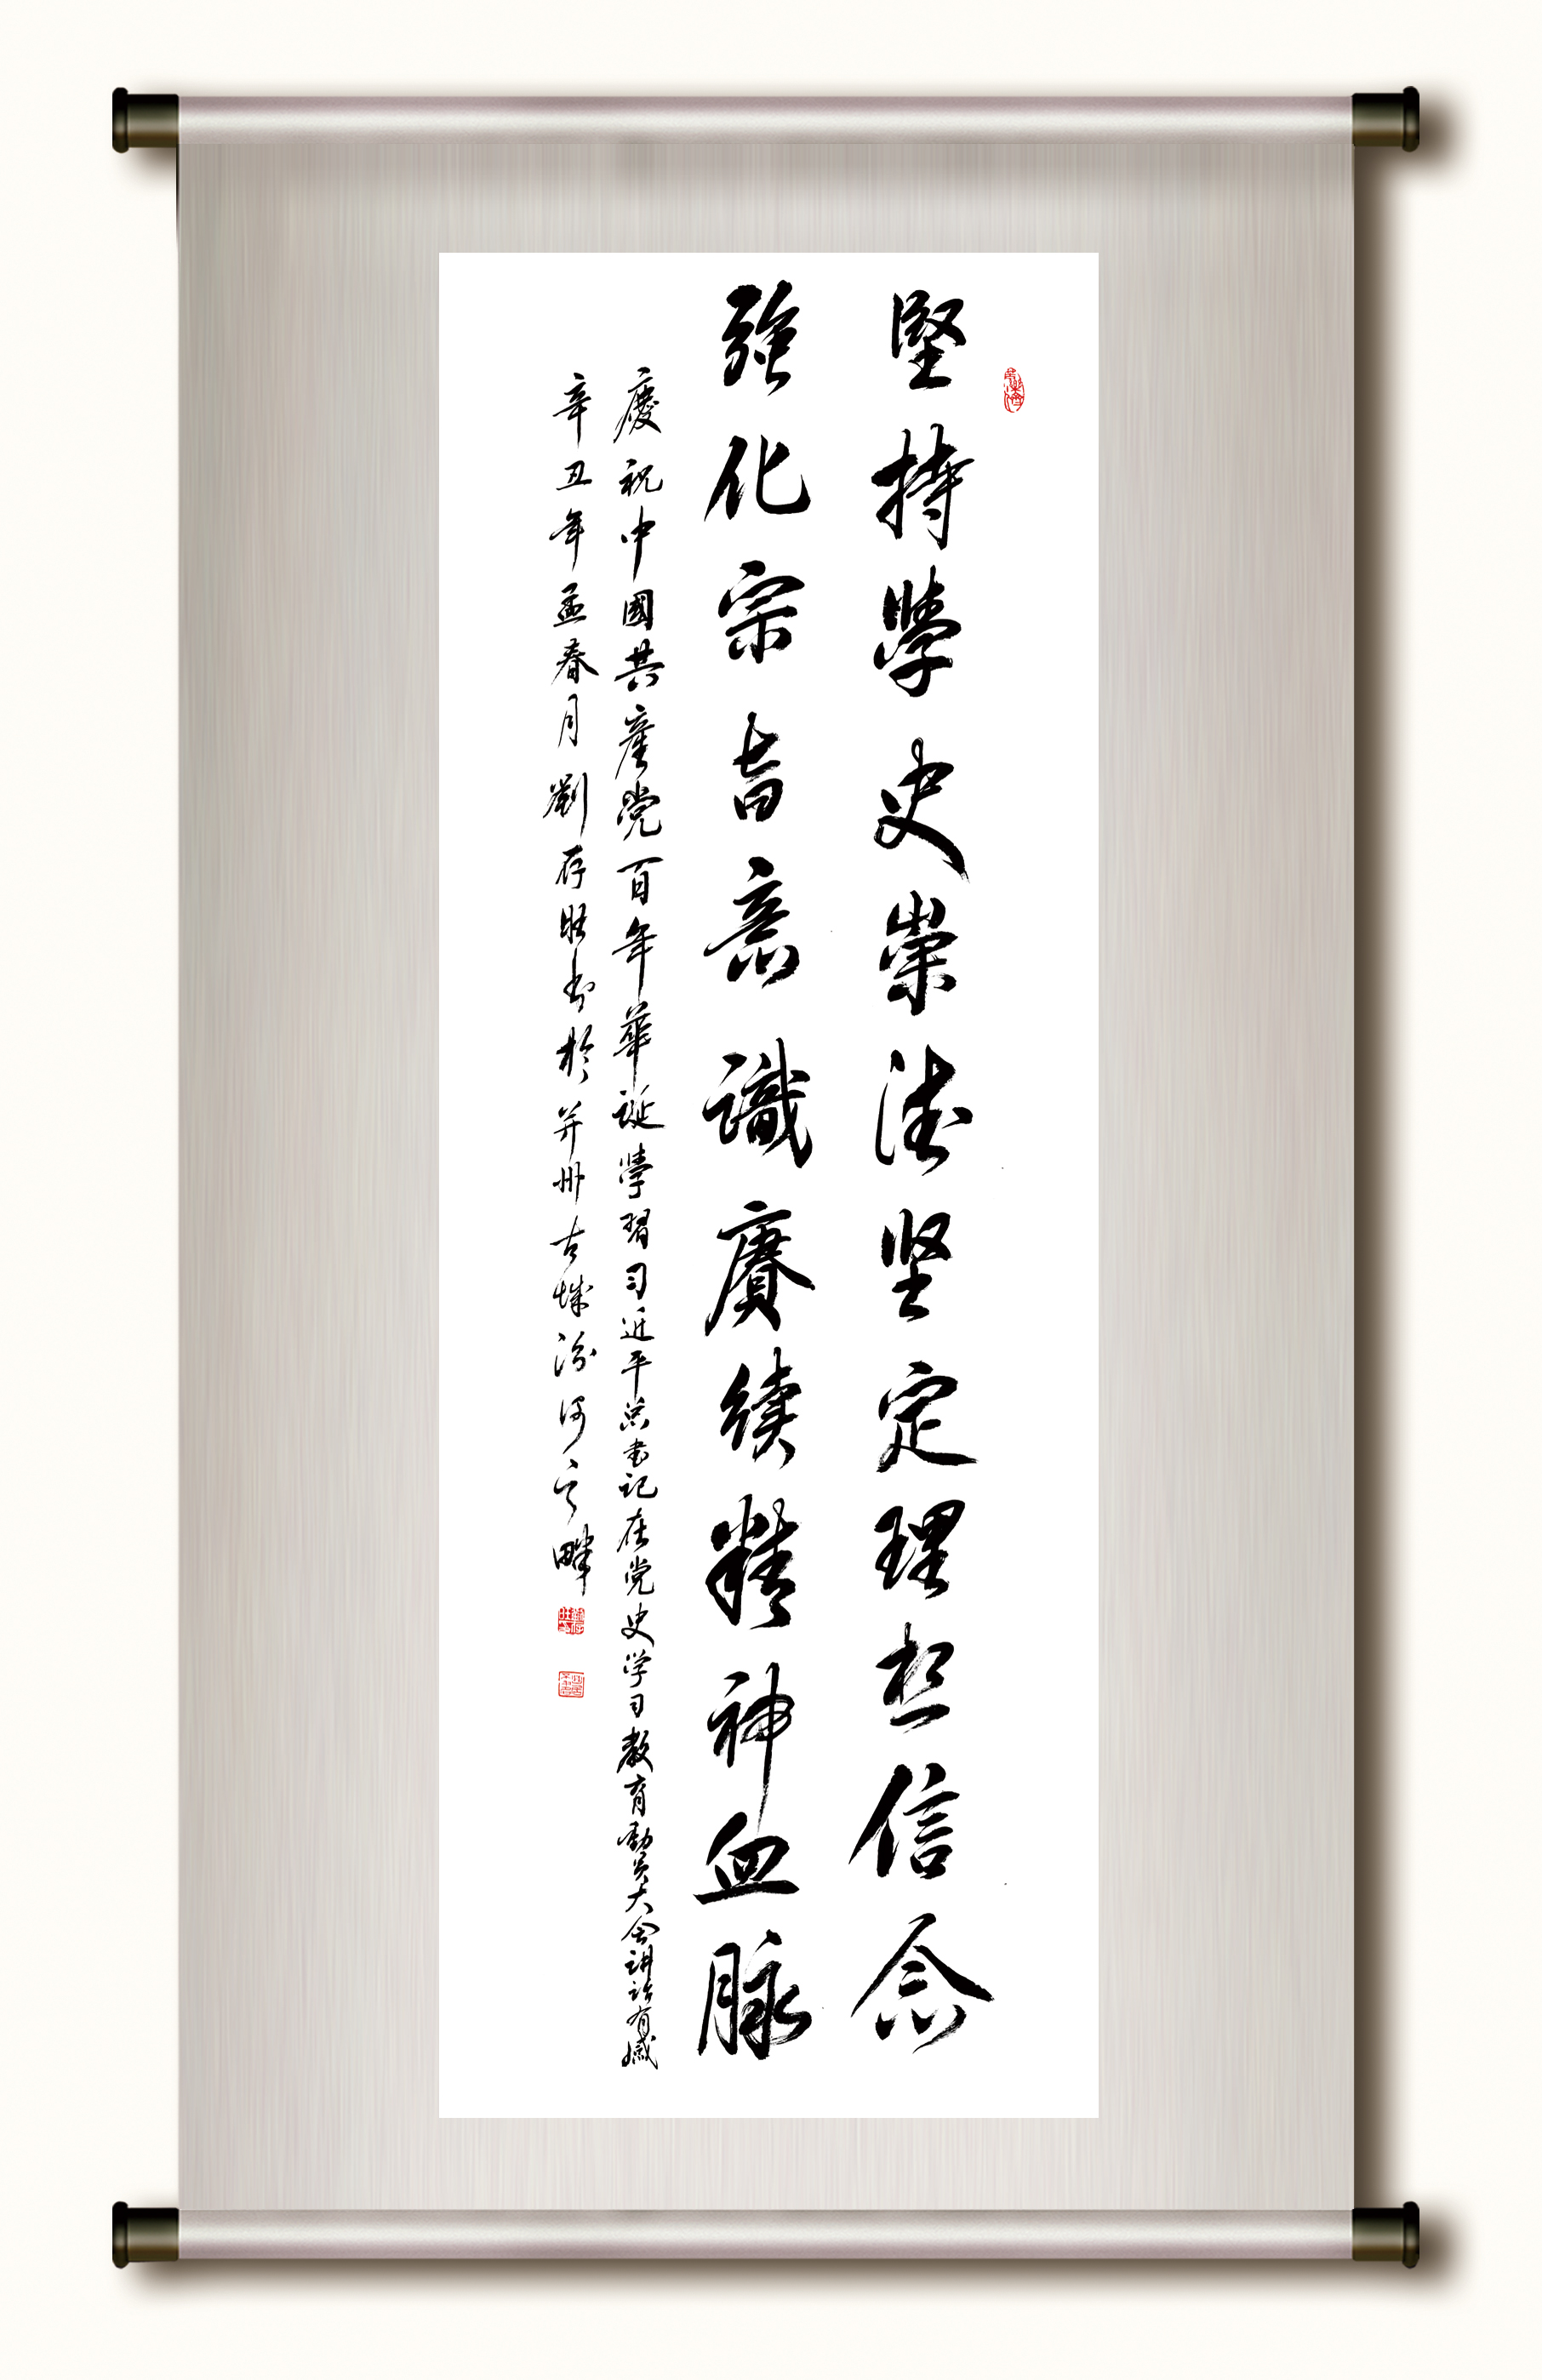 堅持學史崇德坚定理想信念
強化宗旨意識賡續精神血脉
慶祝中國共產党百年華诞學習习近平总书记在党史学习教育動员大会讲话有感
辛丑年孟春月劉存旺书於并州古城汾河之畔